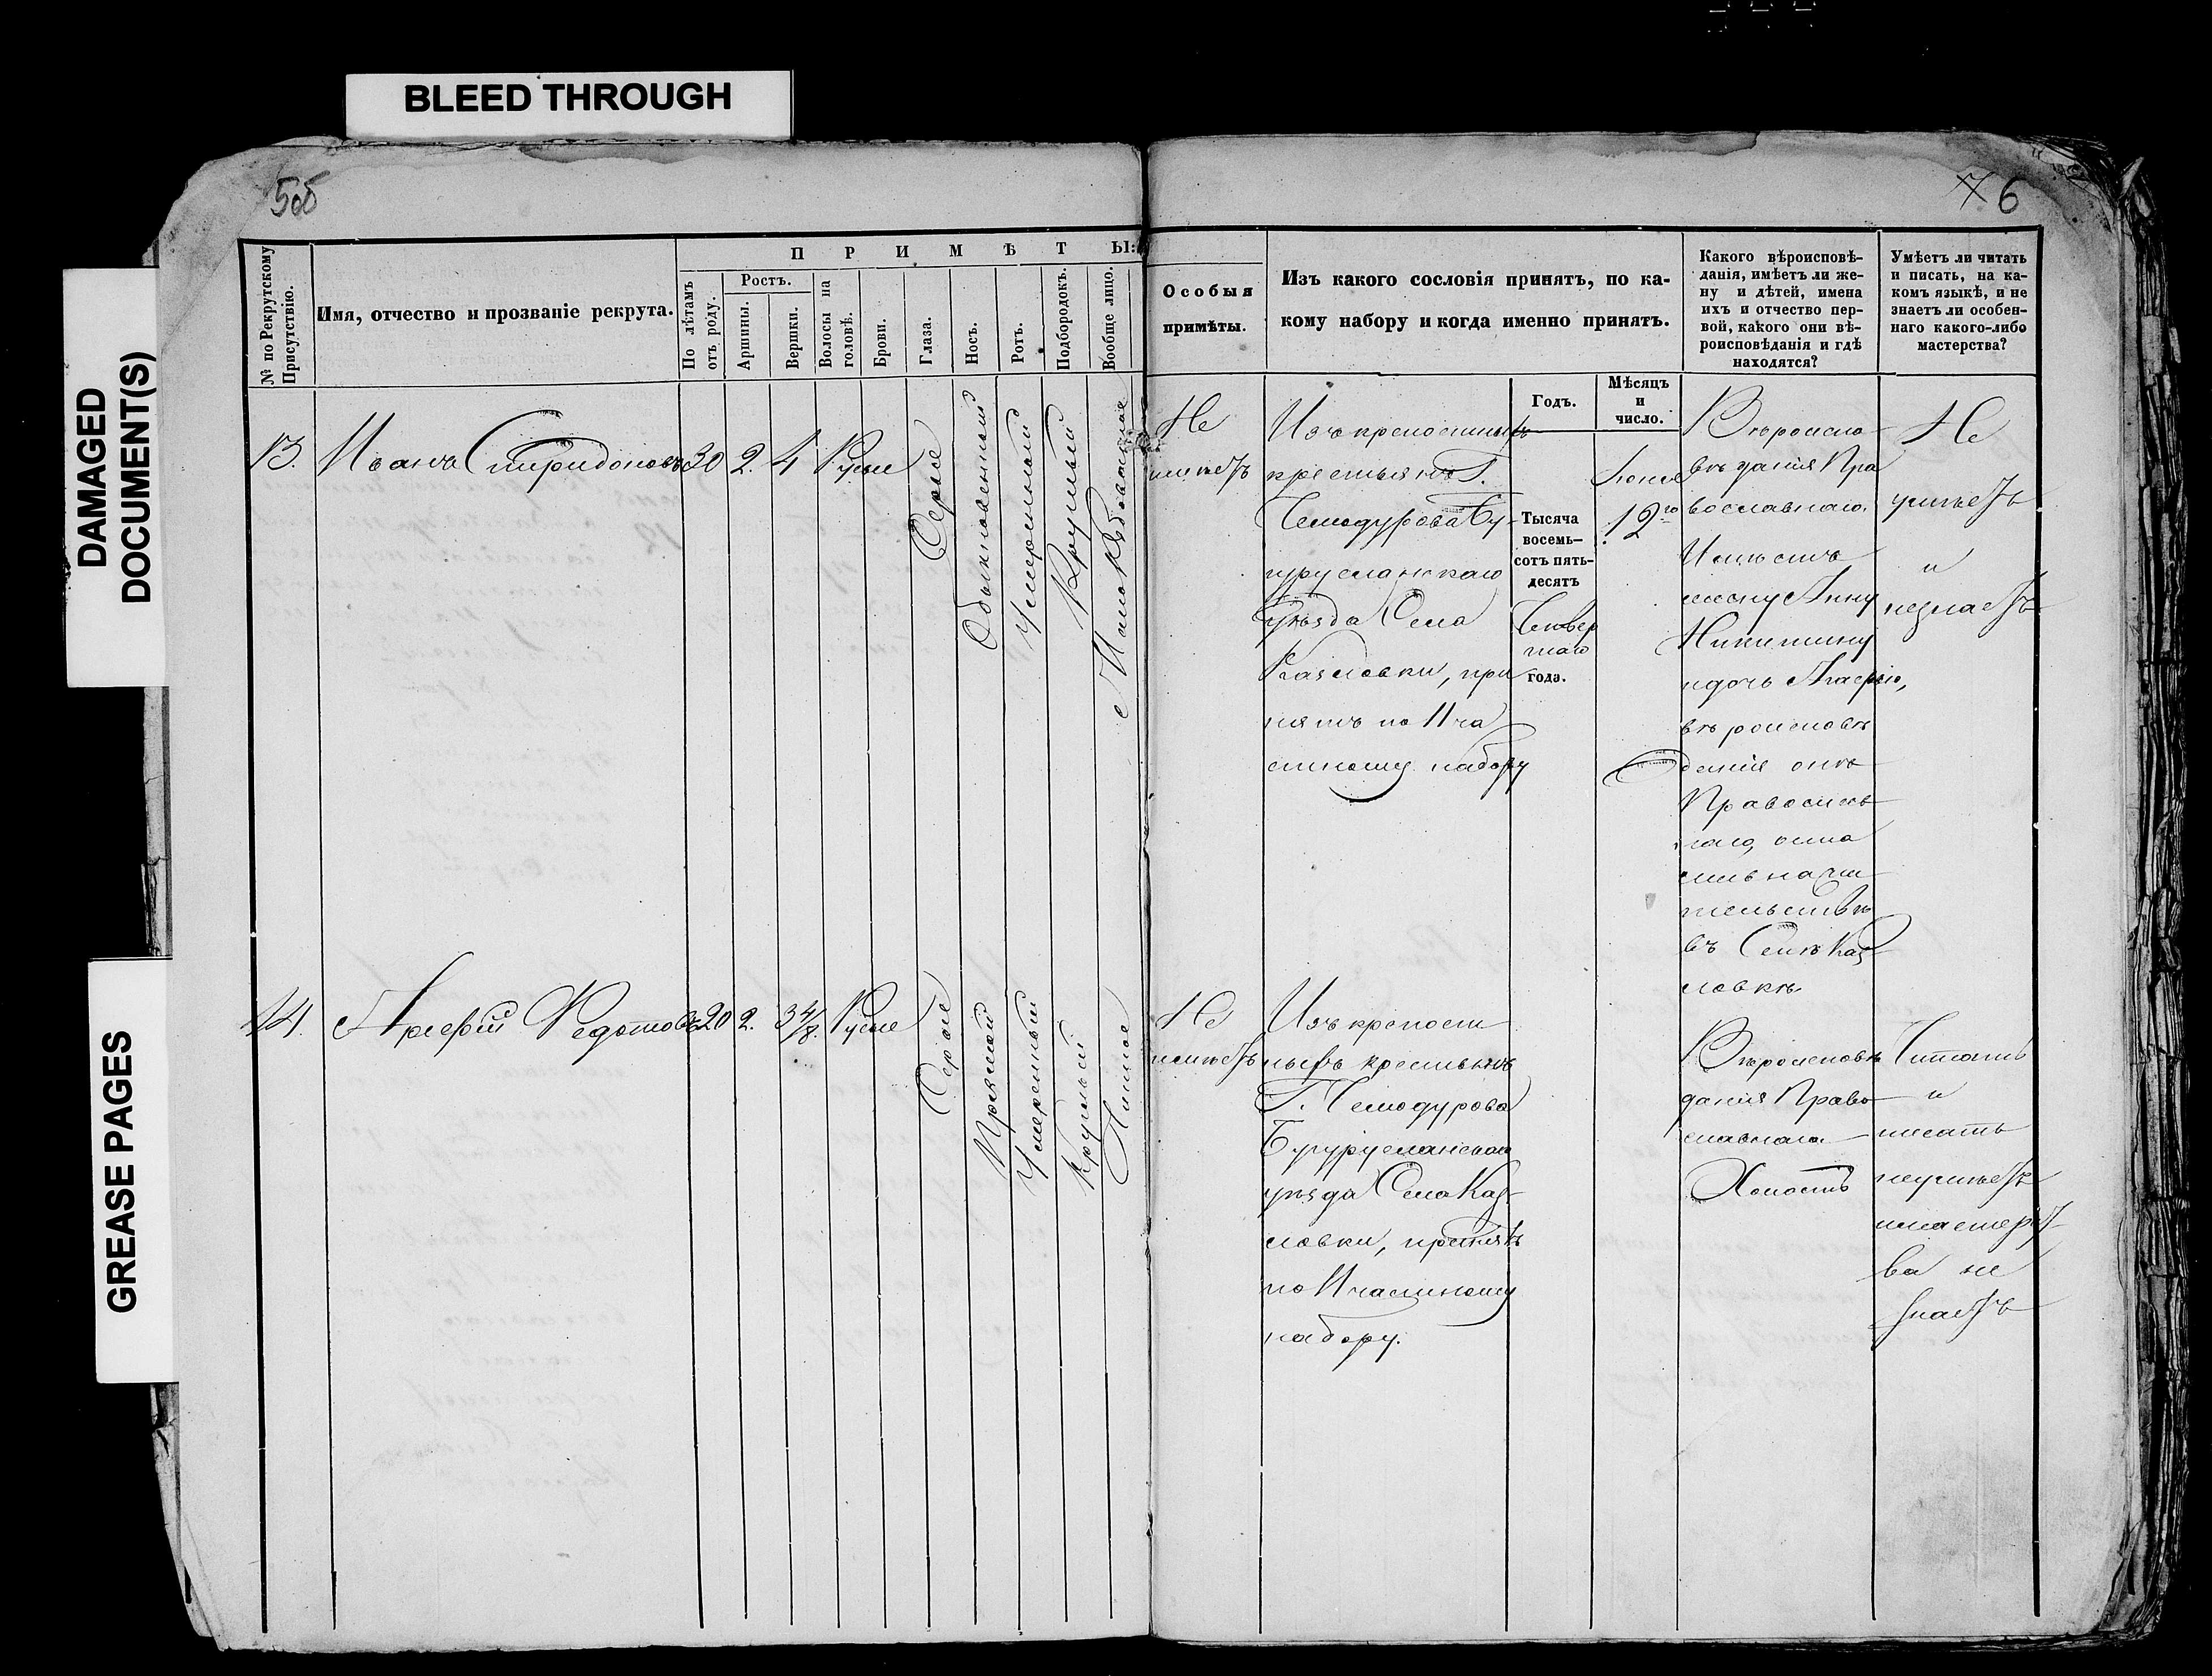 BLEED THROUGH
DAMAGED
DOCUMENT(S)
GREASE PAGES
5об
7 6
№ по Рекрутскому
Присутствію.
Имя, отчество и прозваніе рекрута.
ПРИМѢТЫ:
По лѣтамъ
отъ роду.
Ростъ.
Аршины.
Вершки.
Волосы на
головѣ.
Брови.
Глаза.
Носъ.
Ротъ.
Подбородокъ.
Вообще лицо.
Особыя
примѣты.
Изъ какого сословія принятъ, по ка-
кому набору и когда именно принятъ.
Годъ.
Мѣсяцъ
и
число.
Какого вѣроисповѣ-
данія, имѣетъ ли же-
ну и дѣтей, имена
ихъ и отчество пер-
вой, какого они вѣ-
роисповѣданія и гдѣ
находятся?
Умѣетъ ли читать
и писать, на ка-
комъ языкѣ, и не
знаетъ ли особен-
наго какого-либо
мастерства?
13.
Иванъ Спиридоновъ
30
2.
4
Русые
Серые
Обыкновенный
Умеренный
Круглый
Не
имѣетъ
Изъ крепостныхъ
крестьянъ Г.
Чемодурова Бу-
гурусланскаго
уѣзда Села
Казловки, при
нятъ по II ча
стному набору
Тысяча
восемь-
сотъ пять-
десятъ
года.
Іюня
12го
Вѣроиспо
вѣданія Пра
вославнаго.
Имѣетъ
жену Анну
Никитину
вѣроисповѣ
данія онѣ
Православ
наго, оста
лись на жи
тельствѣ
въ Селѣ Каз
ловкѣ
Не
умѣетъ
и
незнаетъ
14.
Арефій Федотовъ
20
2.
3 4/8.
Русые
Серые
Прямой
Умеренный
Круглый
Чистое
Не
имѣетъ
Изъ крепост
ныхъ крестьянъ
Г. Чемодурова
Бугурусланскаго
уѣзда Села Каз-
ловки, принятъ
по II частному
набору.
Вѣроисповѣ
данія Право
славнаго
Холостъ
Читать
и
писать
неумѣетъ
мастерст
ва не
знаетъ